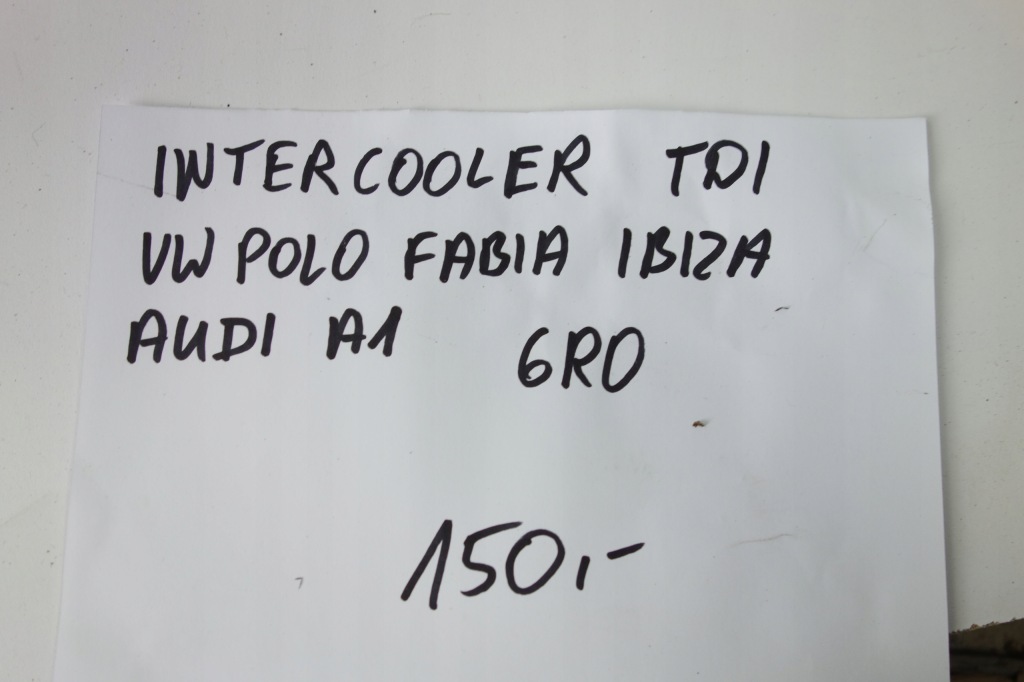 INTERCOOLER TDI
VW POLO FABIA IBIZA
AUDI A1 6R0
150,-